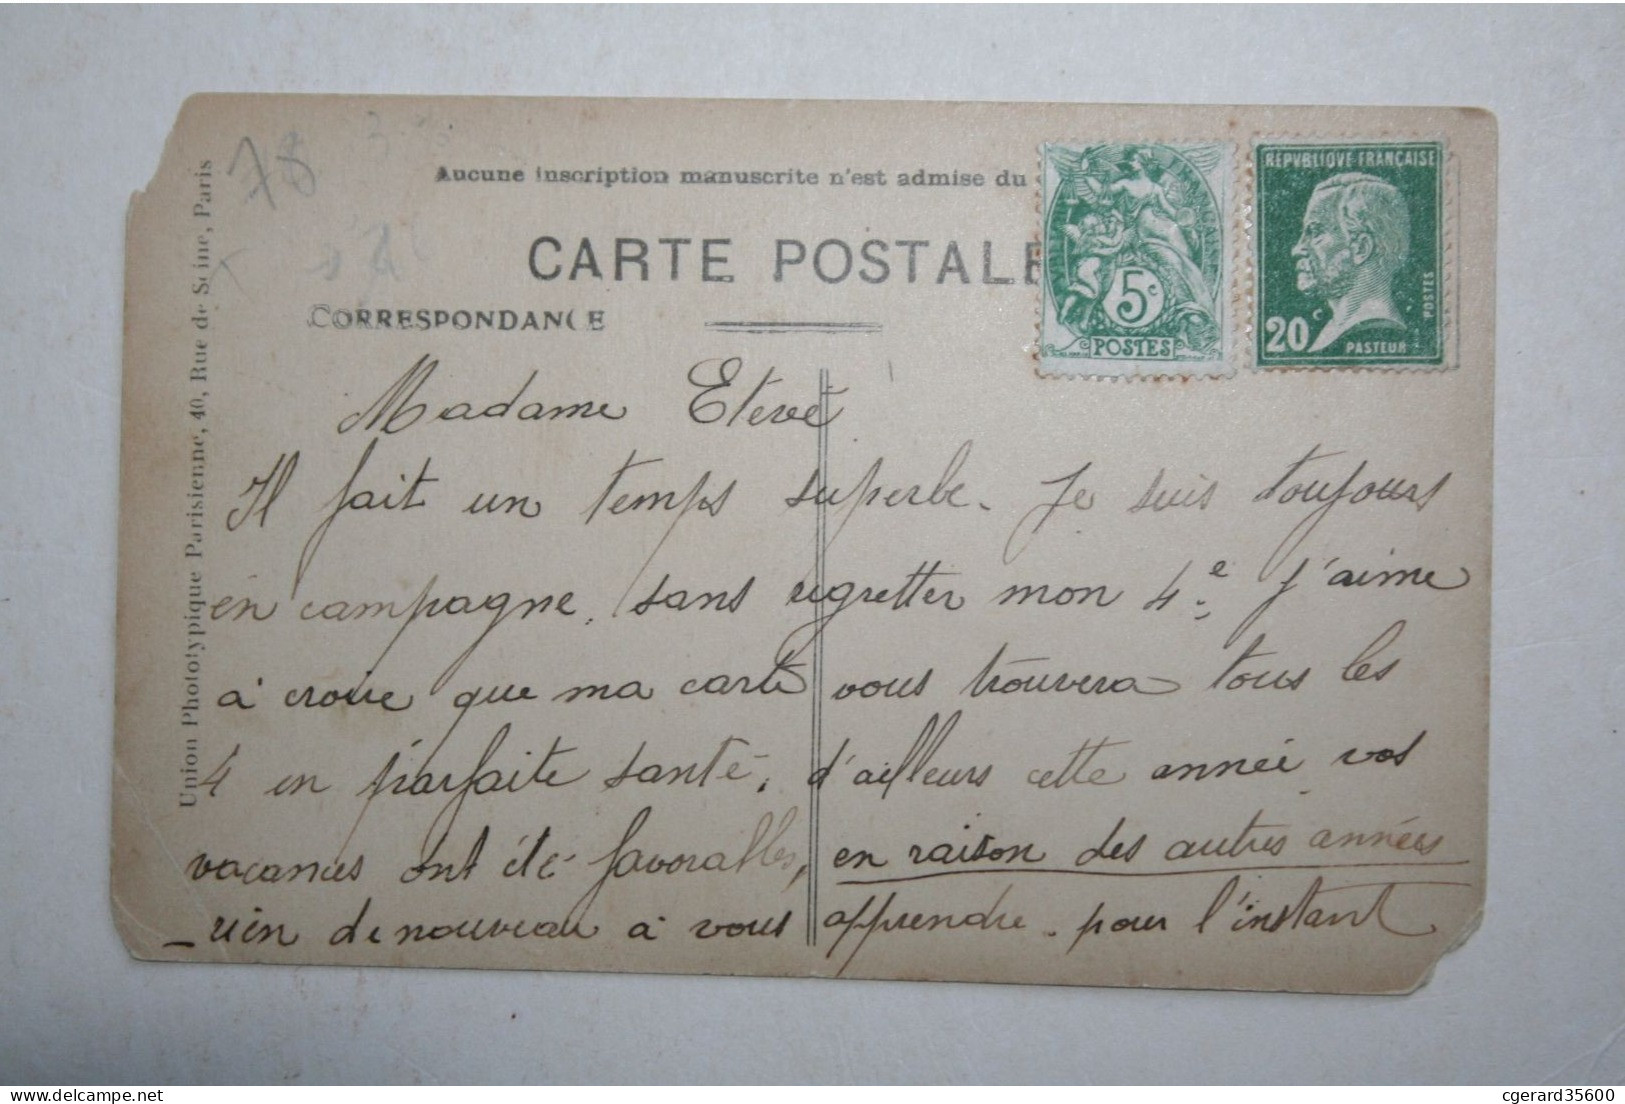 Aucune inscription manuscrite n'est admise du
CARTE POSTALE
CORRESPONDANCE
78
FRANÇAISE
5c
POSTES
REPVBLIQVE FRANÇAISE
POSTES
20c
PASTEUR
Union Phototypique Parisienne, 40, Rue de Seine, Paris
Madame Etevé
Il fait un temps superbe. Je suis toujours
en campagne, sans regretter mon 4e. J'aime
à croire que ma carte vous trouvera tous les
4 en parfaite santé, d'ailleurs cette année vos
vacances ont été favorables, en raison des autres années
_ rien de nouveau à vous apprendre. pour l'instant
delcampe.net
cgerard35600